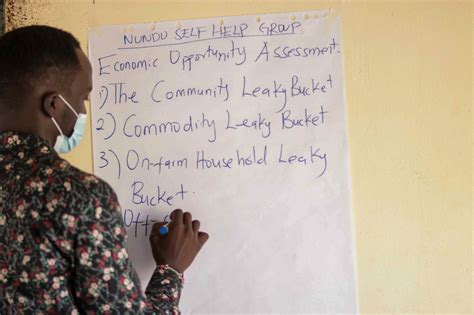 NUNDU SELF HELP GROUP
Economic Opportunity Assessment.
1) The Community Leaky Bucket
2) Commodity Leaky Bucket
3) On-farm Household Leaky
Bucket.
Off-